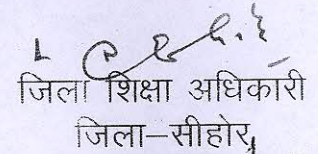 जिला शिक्षा अधिकारी
जिला–सीहोर